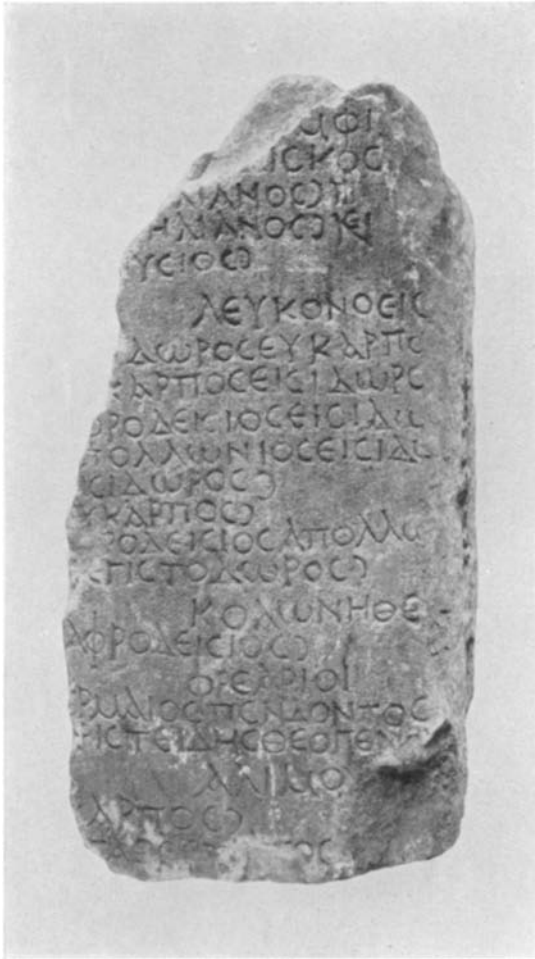 ΑΦΙ
ΙϹΚΟϹ
ΛΙΑΝΟϹϽ
ΗΛΙΑΝΟϹϽΚΕΙ
ΥϹΙΟϹϽ
ΛΕΥΚΟΝΟΕΙϹ
ΔΩΡΟϹΕΥΚΑΡΠΟ
ΚΑΡΠΟϹΕΙϹΙΔΩΡΟ
ΡΟΔΕΙϹΙΟϹΕΙϹΙΔΩ
ΠΟΛΛΩΝΙΟϹΕΙϹΙΔΩ
ΙϹΙΔΩΡΟϹϽ
ΥΚΑΡΠΟϹϽ
ΡΟΔΕΙϹΙΟϹΑΠΟΛΛΩ
ΡΙϹΤΟΔΩΡΟϹϽ
ΚΟΛΩΝΗΘΕ
ΑΦΡΟΔΕΙϹΙΟϹϽ
ΦΡΕΑΡΙΟΙ
ΡΩΛΙΟϹΠΕΝΔΟΝΤΟϹ
ΙϹΤΕΙΔΗϹΘΕΟΓΕΝΟ
ΑΛΙΜΟ
ΚΑΡΠΟϹϽ